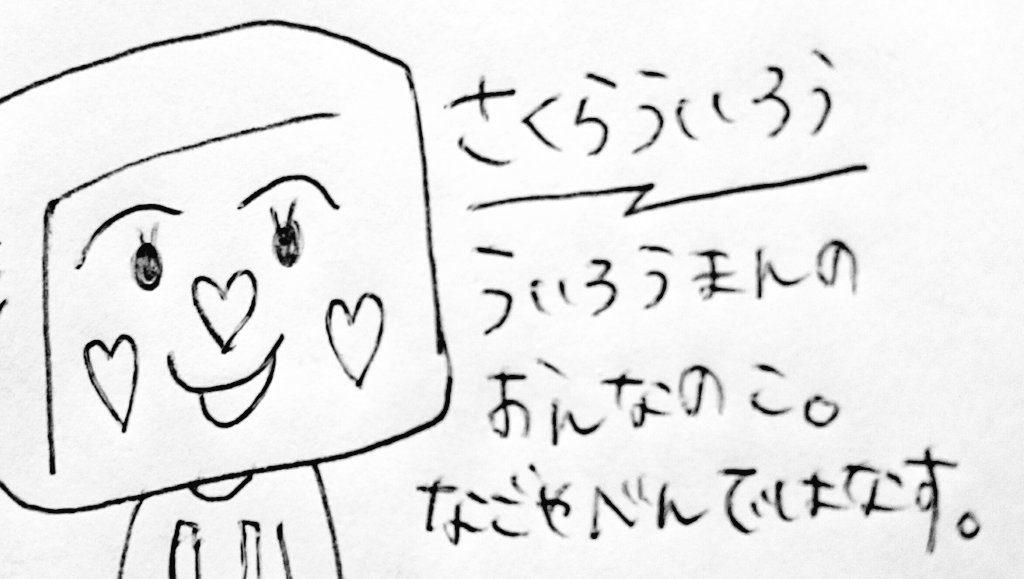 さくらういろう
ういろうまんの
おんなのこ。
なごやべんではなす。